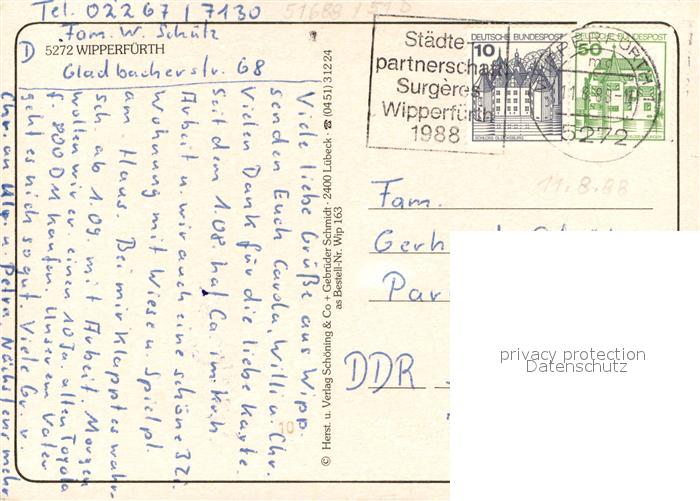 Tel. 02267/7130
Fam. W. Schütz
D 5272 WIPPERFÜRTH
Gladbacherstr. 68
Viele liebe Grüße aus Wipp.
senden Euch Carola, Willi u. Chr.
Vielen Dank für die liebe Karte.
Seit dem 1.08. hat Ca.
Arbeit u. wir auch eine schöne 3Zi.
Wohnung mit Wiese u. Spielpl.
am Haus. Bei mir klappt es wahr-
sch. ab 1.09. mit Arbeit. Morgen
wollen wir er einen 10 Ja. alten Toyota
f. 800 DM kaufen. Unserem Vater
geht es nicht so gut. Viele Gr. v.
Chr. an u. Petra. Nächstens mehr
© Herst. u. Verlag Schöning & Co + Gebrüder Schmidt · 2400 Lübeck · ☎ (0451) 31224
as Bestell-Nr. Wip 163
10
51688/51
Städte-
partnerschaft
Surgères
Wipperfürth
1988
DEUTSCHE BUNDESPOST
10
SCHLOSS GLÜCKSBURG
DEUTSCHE BUNDESPOST
50
WIPPERFÜRTH
mg
5272
11.8.88
Fam.
Gerh
Par
DDR
privacy protection
Datenschutz